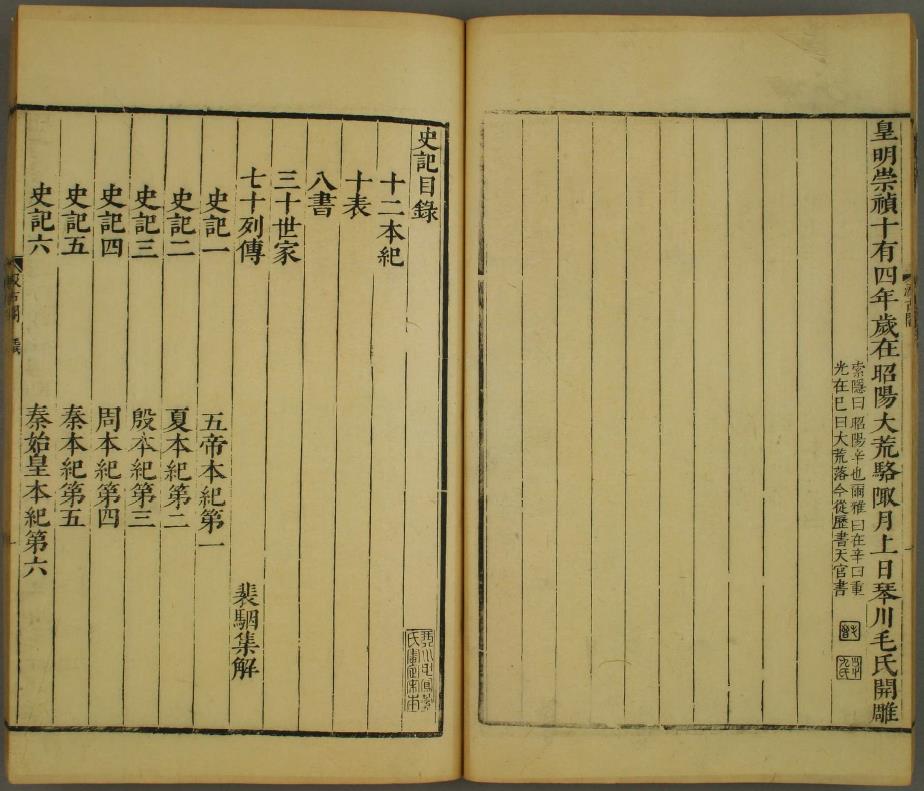 皇明崇禎十有四年歲在昭陽大荒駱陬月上日琴川毛氏開雕
索隱曰昭陽辛也爾雅曰在辛曰重
光在巳曰大荒落今從歷書天官書
史記目錄
十二本紀
十表
八書
三十世家
七十列傳
裴駰集解
史記一 五帝本紀第一
史記二 夏本紀第二
史記三 殷本紀第三
史記四 周本紀第四
史記五 秦本紀第五
史記六 秦始皇本紀第六